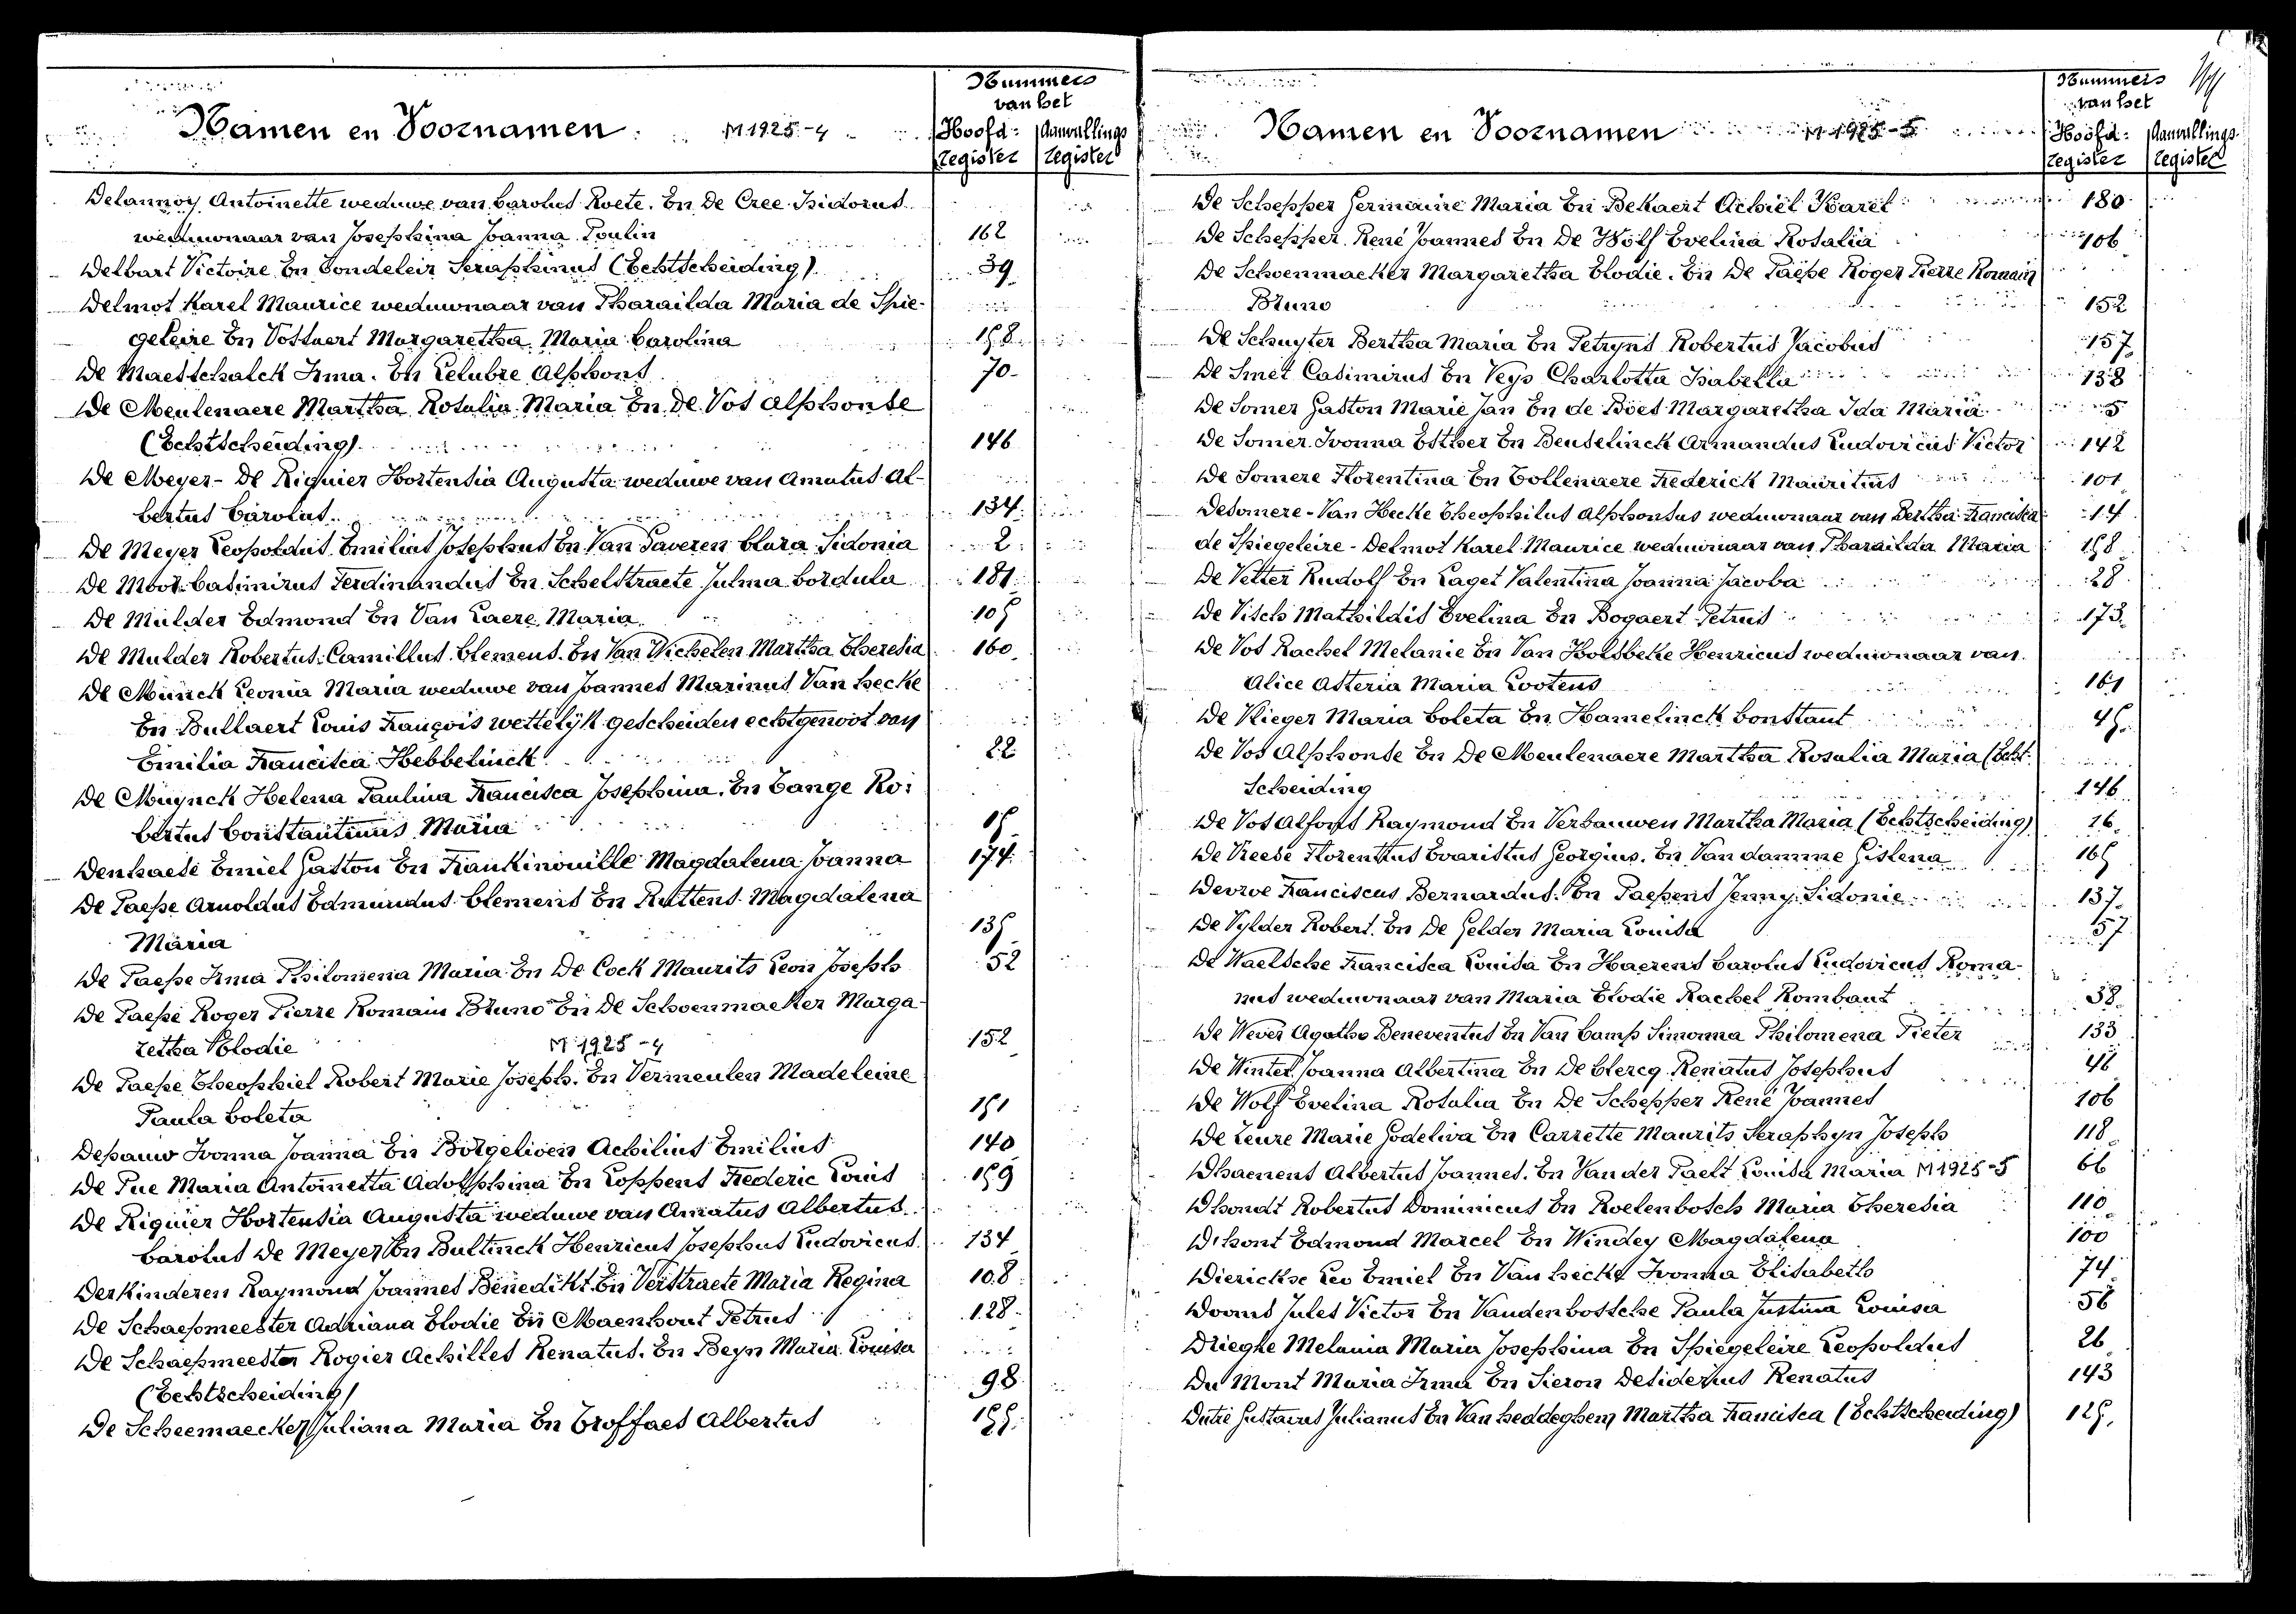 Nummers
van het
Namen en Voornamen M 1925-4 Hoofd- Aanvullings
register register
Delannoy Antoinette weduwe van Carolus Roete. En De Cree Isidorus
weduwnaar van Josephina Joanna Poulin 162
Delbart Victoire En Gondeleir Seraphinus (Echtscheiding) 39
Delmot Karel Maurice weduwnaar van Pharaïlda Maria de Spie-
geleire En Vostaert Margaretha Maria Carolina 158
De Maesschalck Irma. En Lelubre Alphons 70
De Meulenaere Martha Rosalia Maria En De Vos Alphonse
(Echtscheiding) 146
De Meyer- De Riquier Hortensia Augusta weduwe van Amatus Al-
bertus Carolus 134
De Meyer Leopoldus Emilius Josephus En Van Taveren Clara Sidonia 2
De Moor Casimirus Ferdinandus En Schelstraete Julma Cordula 181
De Mulder Edmond En Van Laere Maria 105
De Mulder Robertus Camillus Clemens. En Van Wichelen Martha Theresia 160
De Munck Leonia Maria weduwe van Joannes Marinus Van hecke
En Bullaert Louis François wettelyk gescheiden echtgenoot van
Emilia Francisca Hebbelinck 22
De Muynck Helena Paulina Francisca Josephina. En Tange Ro:
bertus Constantinus Maria 15
Denhaese Emiel Gaston En Frankinouille Magdalena Joanna 174
De Paepe Arnoldus Edmundus Clemens En Ruttens Magdalena
Maria 135
De Paepe Irma Philomena Maria En De Cock Maurits Leon Joseph 52
De Paepe Roger Pierre Romain Bruno En De Schoenmaeker Marga-
retha Elodie M 1925-4 152
De Paepe Theophiel Robert Marie Joseph. En Vermeulen Madeleine
Paula Coleta 151
Depauw Ivonna Joanna En Borgelioen Achilius Emilius 140
De Pue Maria Antoinetta Adolphina En Coppens Frederic Louis 159
De Riquier Hortensia Augusta weduwe van Amatus Albertus
Carolus De Meyer En Bultinck Henricus Josephus Ludovicus 134
Derkinderen Raymond Joannes Benedikt En Verstraete Maria Regina 108
De Schaepmeester Adriana Elodie En Maenhout Petrus 128
De Schaepmeester Rogier Achilles Renatus. En Beyn Maria Louisa
(Echtscheiding) 98
De Scheemaecker Juliana Maria En Troffaes Albertus 155
Nummers
van het
Namen en Voornamen M 1925-5 Hoofd- Aanvullings
register register
De Schepper Germaine Maria En Bekaert Achiel Karel 180
De Schepper René Joannes En De Wolf Evelina Rosalia 106
De Schoenmaeker Margaretha Elodie. En De Paepe Roger Pierre Romain
Bruno 152
De Schuyter Bertha Maria En Petryns Robertus Jacobus 157
De Smet Casimirus En Veys Charlotta Isabella 138
De Somer Gaston Marie Jan En de Boes Margaretha Ida Maria 5
De Somer Ivonna Esther En Beuselinck Armandus Ludovicus Victor 142
De Somere Florentina En Tollenaere Frederick Mauritius 101
Desomere-Van Hecke Theophilus Alphonsus weduwnaar van Bertha Francisca 14
de Spiegeleire-Delmot Karel Maurice weduwnaar van Pharaïlda Maria 158
De Vetter Rudolf En Laget Valentina Joanna Jacoba 28
De Visch Mathildis Evelina En Bogaert Petrus 173
De Vos Rachel Melanie En Van Holsbeke Henricus weduwnaar van
Alice Asteria Maria Lootens 161
De Vlieger Maria Coleta En Hamelinck Constant 45
De Vos Alphonse En De Meulenaere Martha Rosalia Maria (Echt-
Scheiding 146
De Vos Alfons Raymond En Verbauwen Martha Maria (Echtscheiding) 16
De Vreese Florentius Evaristus Georgius. En Van damme Gislena 165
Devroe Franciscus Bernardus. En Paepens Jenny Sidonie 137
De Vylder Robert En De Gelder Maria Louisa 57
De Waelsche Francisca Louisa En Haerens Carolus Ludovicus Roma-
nus weduwnaar van Maria Elodie Rachel Rombaut 38
De Wever Agatho Beneventus En Van Camp Simonna Philomena Pieter 133
De Winter Joanna Albertina En De Clercq Renatus Josephus 46
De Wolf Evelina Rosalia En De Schepper René Joannes 106
De Zeure Marie Godeliva En Carrette Maurits Seraphyn Joseph 118
Dhaenens Albertus Joannes. En Van der Paelt Louisa Maria M 1925-5 66
Dhondt Robertus Dominicus En Roelenbosch Maria Theresia 110
D'hont Edmond Marcel En Windey Magdalena 100
Dierickse Leo Emiel En Van hecke Ivonna Elisabeth 74
Dooms Jules Victor En Vandenbossche Paula Justina Louisa 56
Drieghe Melania Maria Josephina En Spiegeleire Leopoldus 26
Du Mont Maria Irma En Sieron Desiderius Renatus 143
Dutré Gustavus Julianus En Van heddeghem Martha Francisca (Echtscheiding) 125